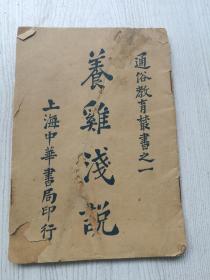 通俗教育叢書之一
養雞淺說
上海中華書局印行